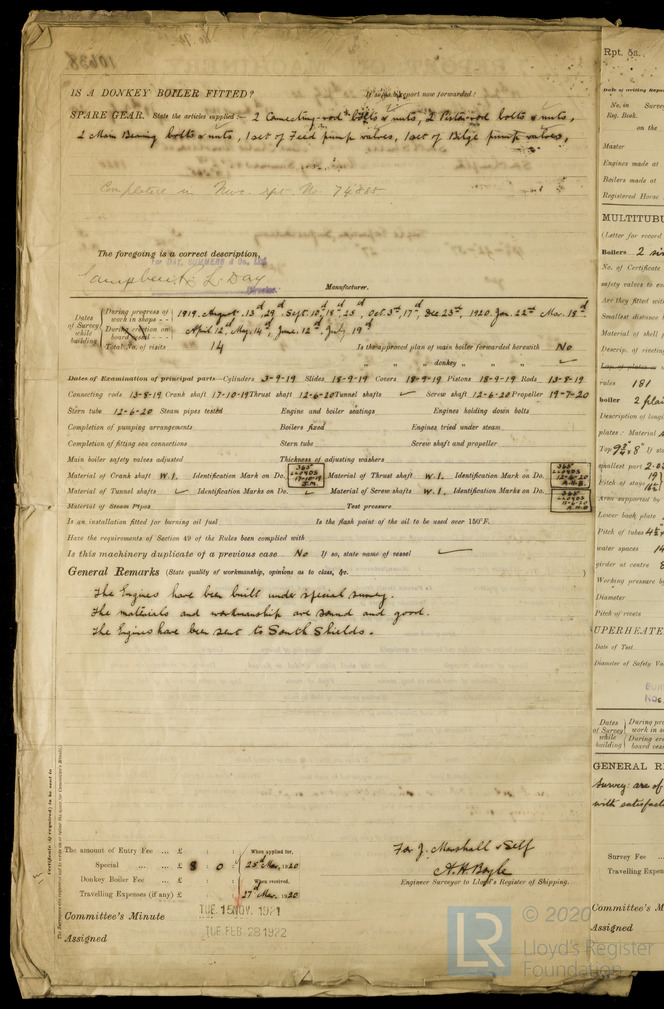 IS A DONKEY BOILER FITTED? If so, is a report now forwarded?
SPARE GEAR. State the articles supplied:- 2 Connecting-rod bolts & nuts, 2 Piston-rod bolts & nuts,
2 Main Bearing bolts & nuts, 1 set of Feed pump valves, 1 set of Bilge pump valves,
Completed in Nwc. rpt. No. 74885
The foregoing is a correct description,
For DAY, SUMMERS & Co., Ltd.
Director.
Manufacturer.
Dates of Survey while building
During progress of work in shops - - 1919. August. 13th, 29, Sept. 10, 18, 25, Oct. 3rd, 17th, Dec. 23rd, 1920. Jan. 22nd Mar. 18th
During erection on board vessel - - April 12th, May. 14th, June. 12th July 19th
Total No. of visits 14 Is the approved plan of main boiler forwarded herewith No
" " " donkey " " "
Dates of Examination of principal parts—Cylinders 3-9-19 Slides 18-9-19 Covers 18-9-19 Pistons 18-9-19 Rods 13-8-19
Connecting rods 13-8-19 Crank shaft 17-10-19 Thrust shaft 12-6-20 Tunnel shafts Screw shaft 12-6-20 Propeller 19-7-20
Stern tube 12-6-20 Steam pipes tested Engine and boiler seatings Engines holding down bolts
Completion of pumping arrangements Boilers fixed Engines tried under steam
Completion of fitting sea connections Stern tube Screw shaft and propeller
Main boiler safety valves adjusted Thickness of adjusting washers
Material of Crank shaft W.I. Identification Mark on Do. Material of Thrust shaft W.I. Identification Mark on Do.
Material of Tunnel shafts Identification Marks on Do. Material of Screw shafts W.I. Identification Marks on Do.
Material of Steam Pipes Test pressure
Is an installation fitted for burning oil fuel Is the flash point of the oil to be used over 150°F.
Have the requirements of Section 49 of the Rules been complied with
Is this machinery duplicate of a previous case No If so, state name of vessel
General Remarks (State quality of workmanship, opinions as to class, &c.
The Engines have been built under special survey.
The materials and workmanship are sound and good.
The Engines have been sent to South Shields.
The amount of Entry Fee ... £ : : When applied for,
Special ... ... £ 8 : 0 : 25th Mar. 1920
Donkey Boiler Fee ... £ : : When received,
Travelling Expenses (if any) £ : : 27th Mar. 1920
For J. Marshall & Self
A. H. Boyle
Engineer Surveyor to Lloyd's Register of Shipping.
Committee's Minute TUE. 15 NOV. 1921
Assigned TUE. FEB. 28 1922
Certificate (if required) to be sent to
Rpt. 5a.
No. in
Reg. Book.
on the
Master
Engines made at
Boilers made at
Registered Horse
MULTITUBU
(Letter for record
Boilers 2
No. of Certificate
safety valves to ea
Are they fitted wi
Smallest distance b
Material of shell p
Descrip. of riveting
rules 181
boiler 2 plai
Description of longi
plates: Material
smallest part
Pitch of stays
Area supported by
Lower back plate
Pitch of tubes
water spaces
girder at centre
Working pressure by
Diameter
Pitch of rivets
UPERHEATE
Date of Test
Diameter of Safety Va
Dates of Survey while building
During pro
work in s
During ere
board vess
GENERAL RE
Survey: are of
with satisfact
Survey Fee ...
Travelling Expen
Committee's M
Assigned
LR © 2020
Lloyd's Register
Foundation